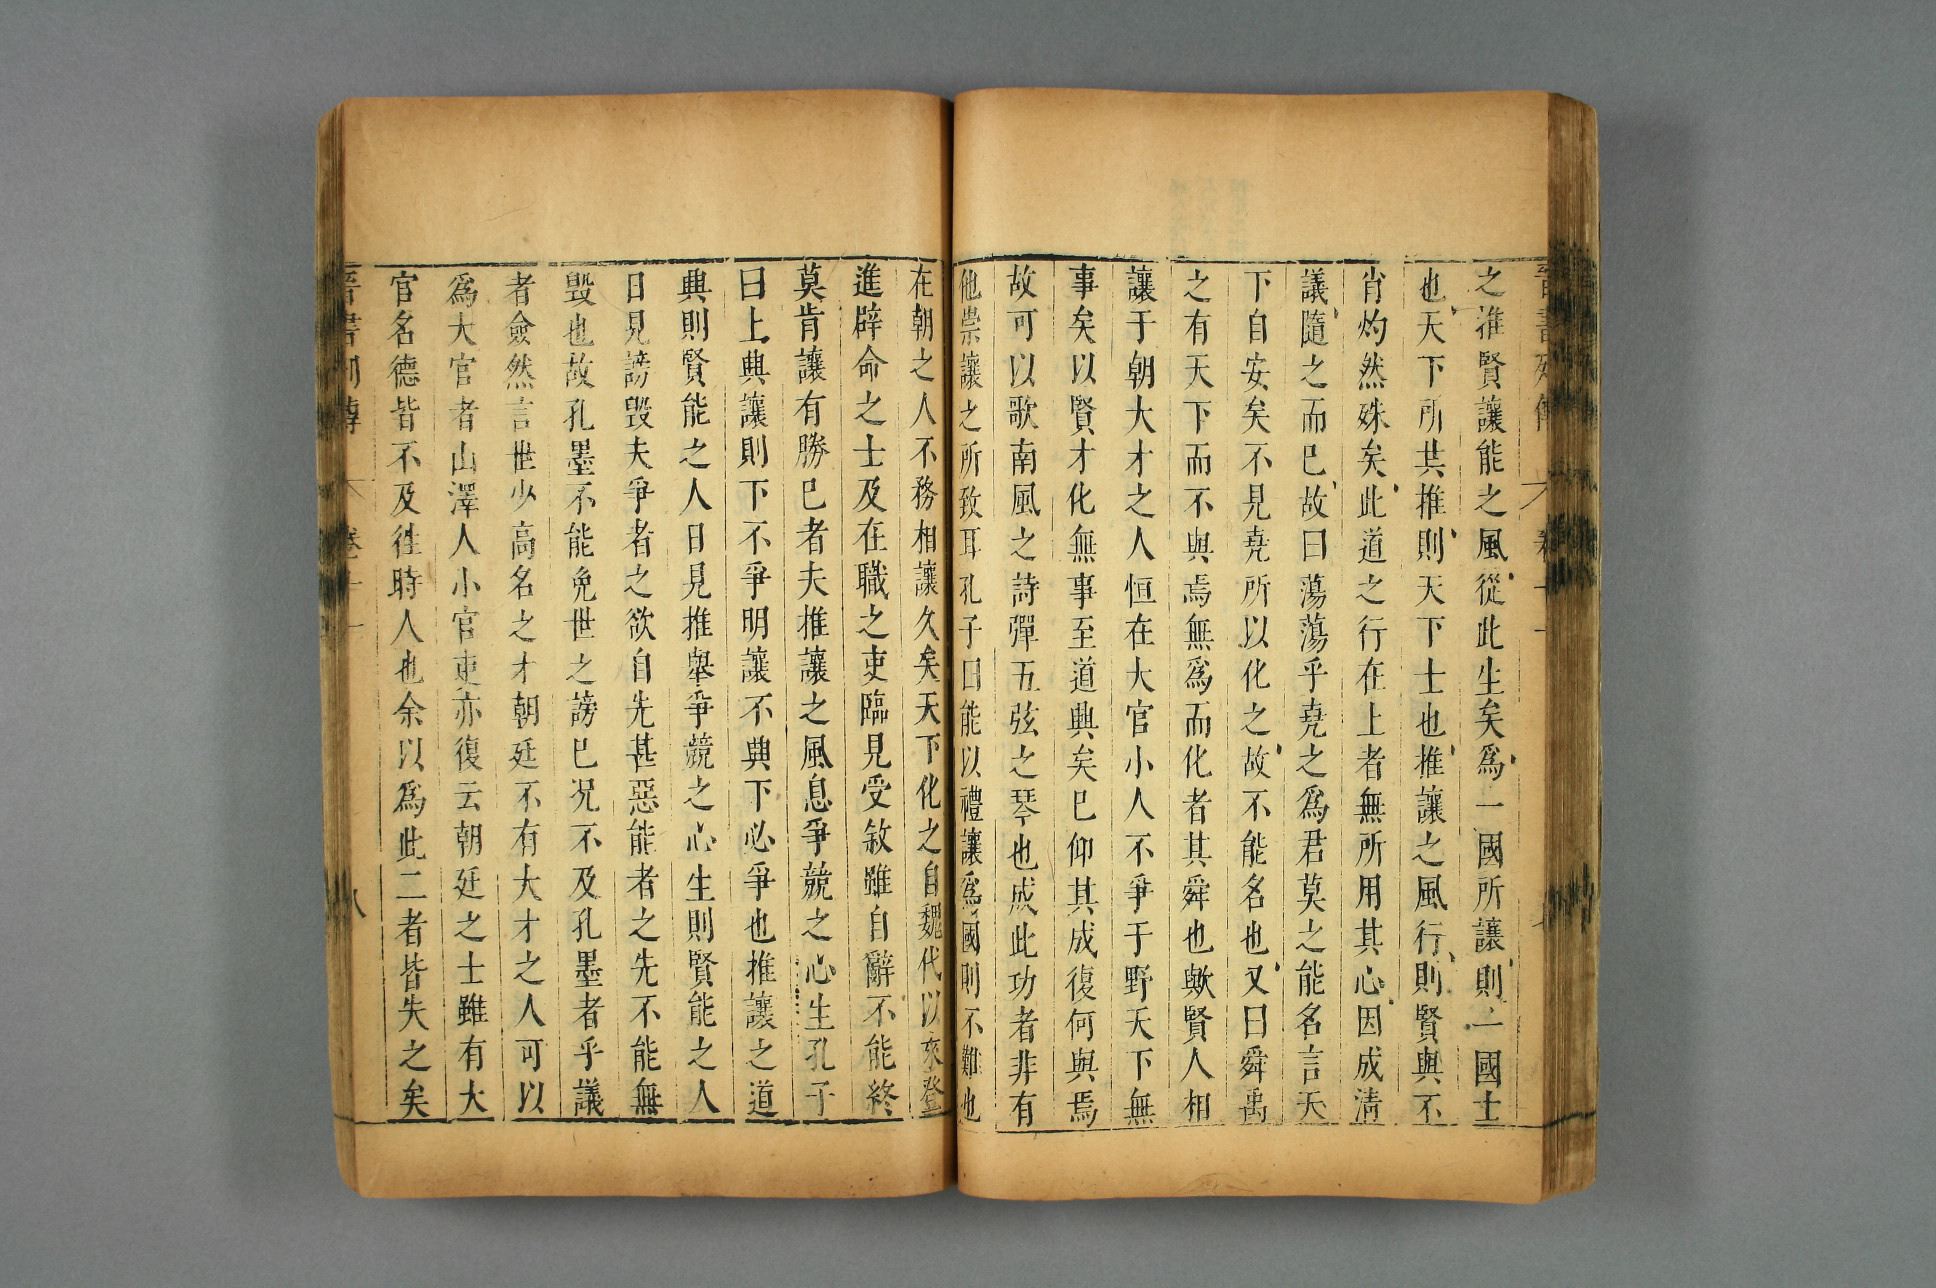 之推賢讓能之風從此生矣爲一國所讓則一國士
也天下所共推則天下士也推讓之風行則賢與不
肖灼然殊矣此道之行在上者無所用其心因成清
議隨之而已故曰蕩蕩乎堯之爲君莫之能名言天
下自安矣不見堯所以化之故不能名也又曰舜禹
之有天下而不與焉無爲而化者其舜也歟賢人相
讓于朝大才之人恒在大官小人不爭于野天下無
事矣以賢才化無事至道興矣已仰其成復何與焉
故可以歌南風之詩彈五弦之琴也成此功者非有
他崇讓之所致耳孔子曰能以禮讓爲國則不難也
在朝之人不務相讓久矣天下化之自魏代以來登
進辟命之士及在職之吏臨見受敘雖自辭不能終
莫肯讓有勝己者夫推讓之風息爭競之心生孔子
曰上興讓則下不爭明讓不興下必爭也推讓之道
興則賢能之人日見推舉爭競之心生則賢能之人
日見謗毀夫爭者之欲自先甚惡能者之先不能無
毀也故孔墨不能免世之謗已况不及孔墨者乎議
者僉然言世少高名之才朝廷不有大才之人可以
爲大官者山澤人小官吏亦復云朝廷之士雖有大
官名德皆不及徃時人也余以爲此二者皆失之矣
晉書列傳 卷十一 八